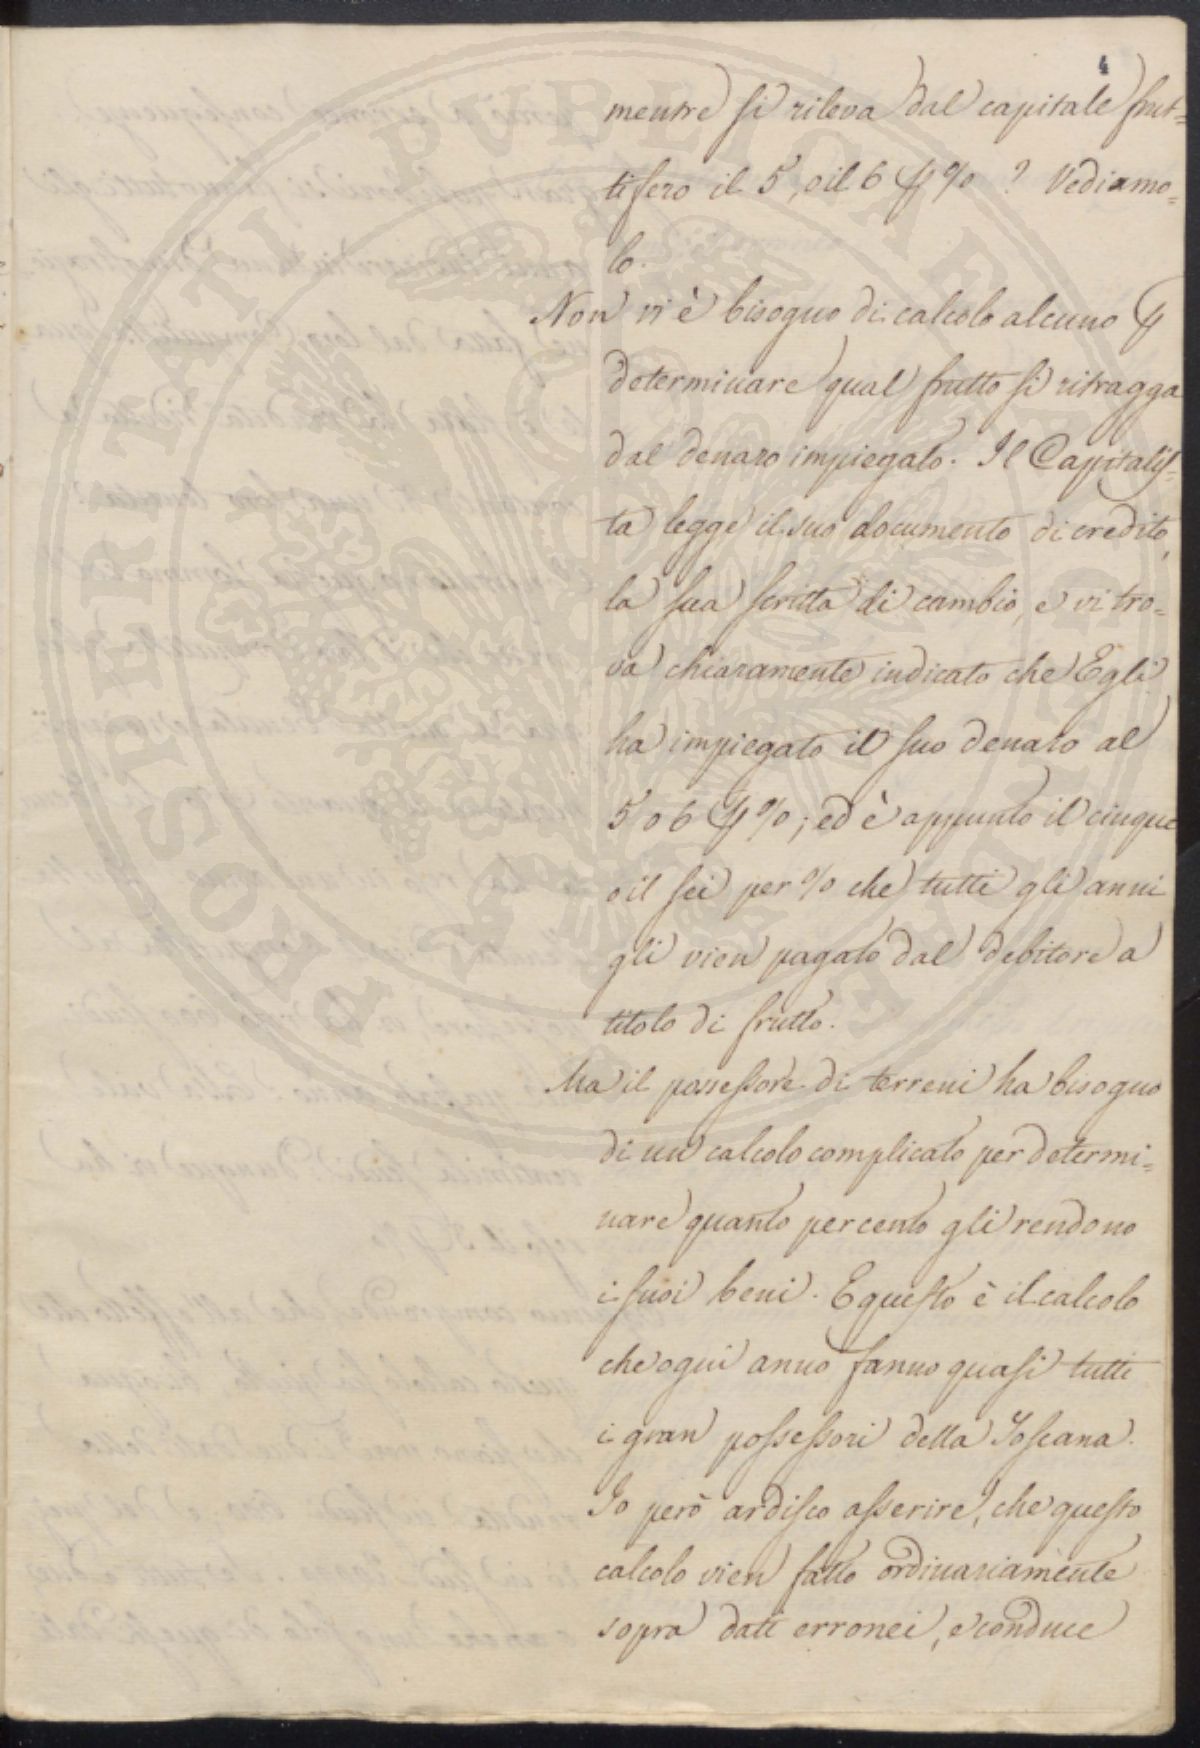 4
mentre si rileva dal capitale frut=
tifero il 5, o il 6 p % ? Vediamo=
lo.
Non vi è bisogno di calcolo alcuno p
determinare qual frutto si ritragga
dal denaro impiegato. Il Capitalis=
ta legge il suo documento di credito,
la sua scritta di cambio, e vi tro=
va chiaramente indicato che Egli
ha impiegato il suo denaro al
5 o 6 p %; ed è appunto il cinque
o il sei per % che tutti gli anni
gli vien pagato dal debitore a
titolo di frutto.
Ma il possessore di terreni ha bisogno
di un calcolo complicato per determi=
nare quanto per cento gli rendono
i suoi beni. E questo è il calcolo
che ogni anno fanno quasi tutti
i gran possessori della Toscana.
Io però ardisco asserire, che questo
calcolo vien fatto ordinariamente
sopra dati erronei, e conduce
PROSPERITATI PUBLICAE AUGENDAE